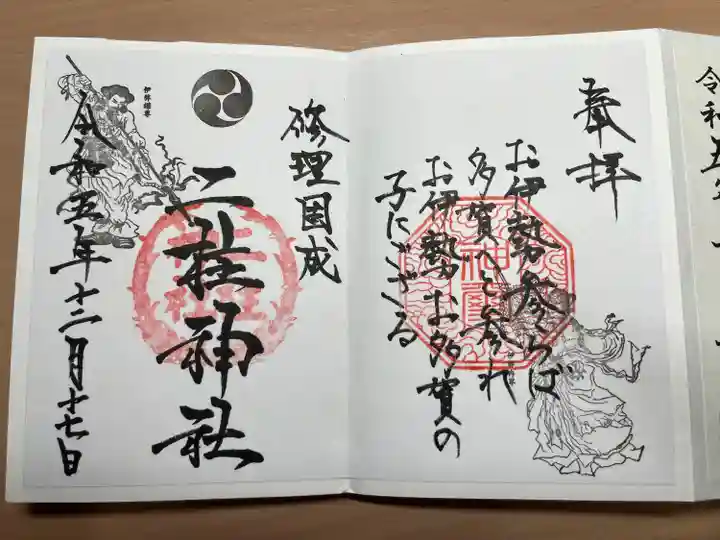 令和五年十
奉拝
お伊勢参らば
多賀へと参れ
お伊勢お多賀の
子にござる
神璽
修理固成
二社神社
伊弉諾尊
令和五年十二月十七日